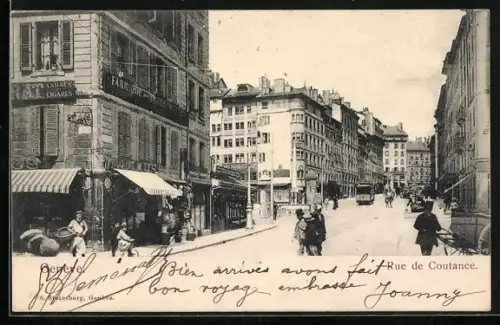 TABACS
CIGARES
FABRIQUE
Genève.
Rue de Coutance.
Bien arrivés avons fait
bon voyage embrasse Joanny
S. Steinberg, Genève.